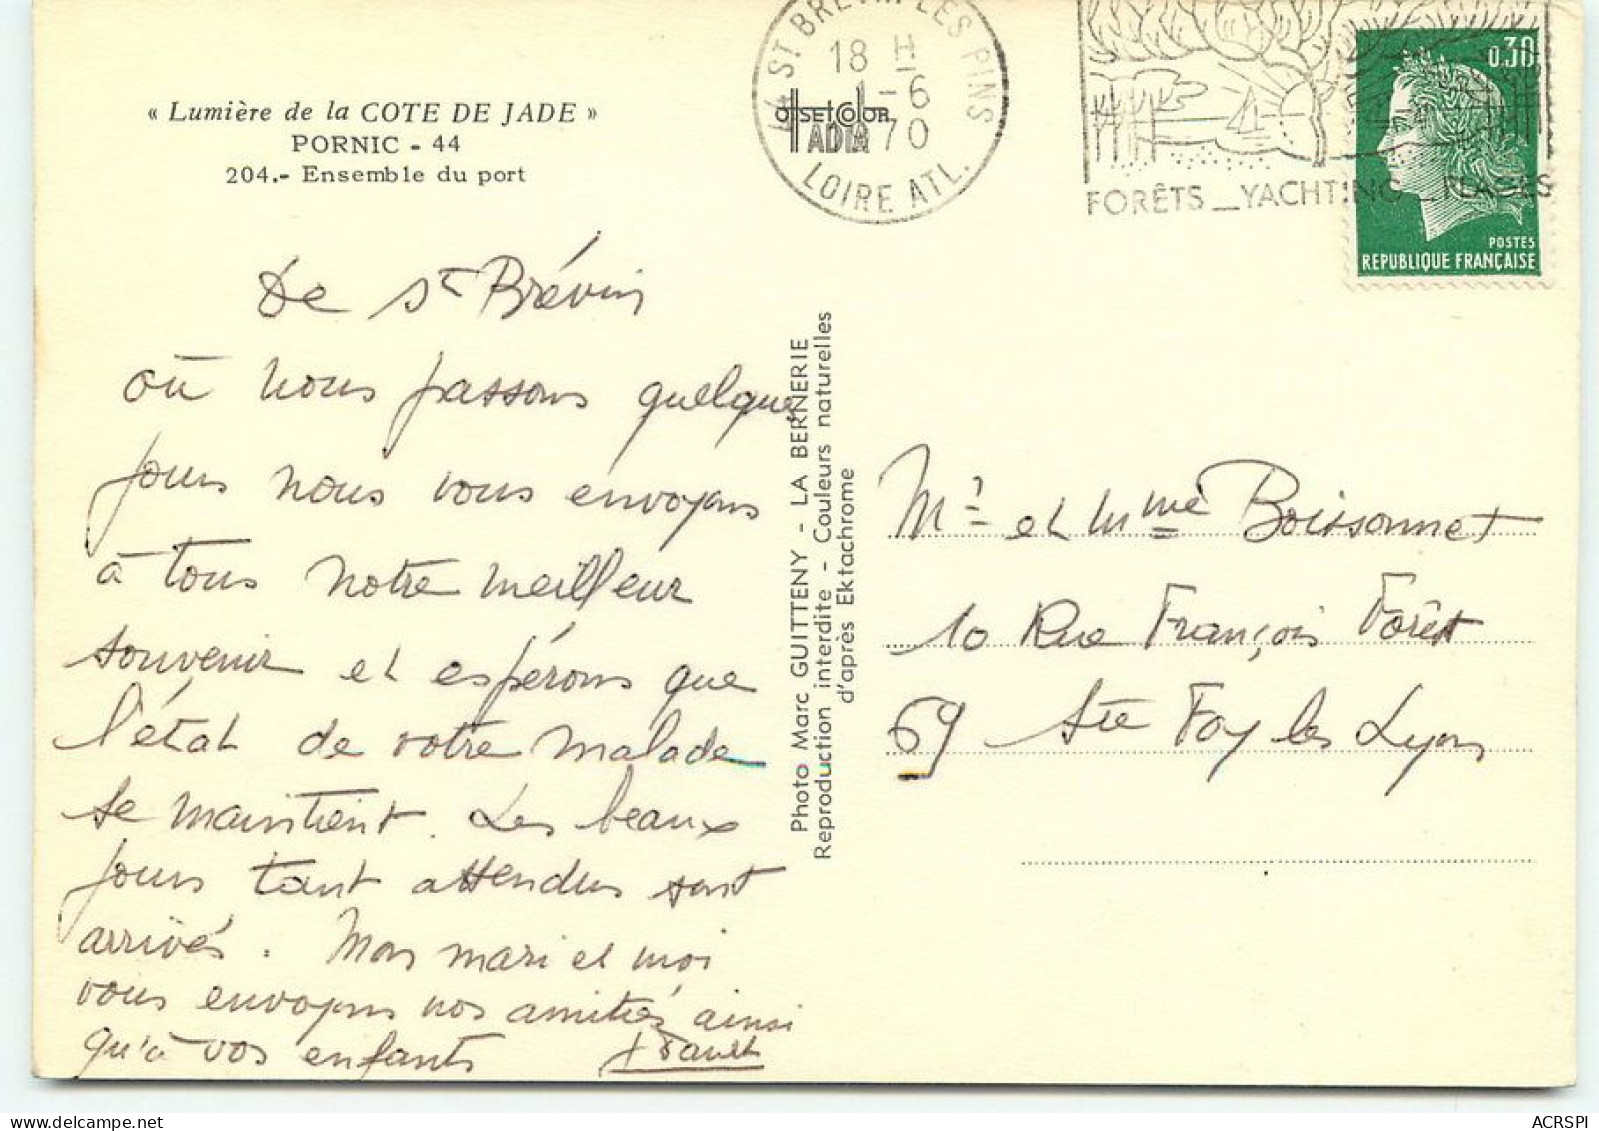 « Lumière de la COTE DE JADE »
PORNIC - 44
204.- Ensemble du port
De St Brévin
où nous passons quelques
jours nous vous envoyons
à tous notre meilleur
souvenir et espérons que
l'état de votre malade
se maintient. Les beaux
jours tant attendus sont
arrivés. Mon mari et moi
vous envoyons nos amitiés ainsi
qu'à vos enfants
Photo Marc GUITTENY - LA BERNERIE
Reproduction interdite - Couleurs naturelles
d'après Ektachrome
44 ST BREVIN LES PINS
18 H
1-6
1970
LOIRE ATL.
OffsetColor
IADIA
FORÊTS _ YACHTING _ PLAGES
0,30
POSTES
REPUBLIQUE FRANÇAISE
Mr et Mme Boissonnet
10 Rue François Forêst
69 Ste Foy les Lyon
ACRSPI